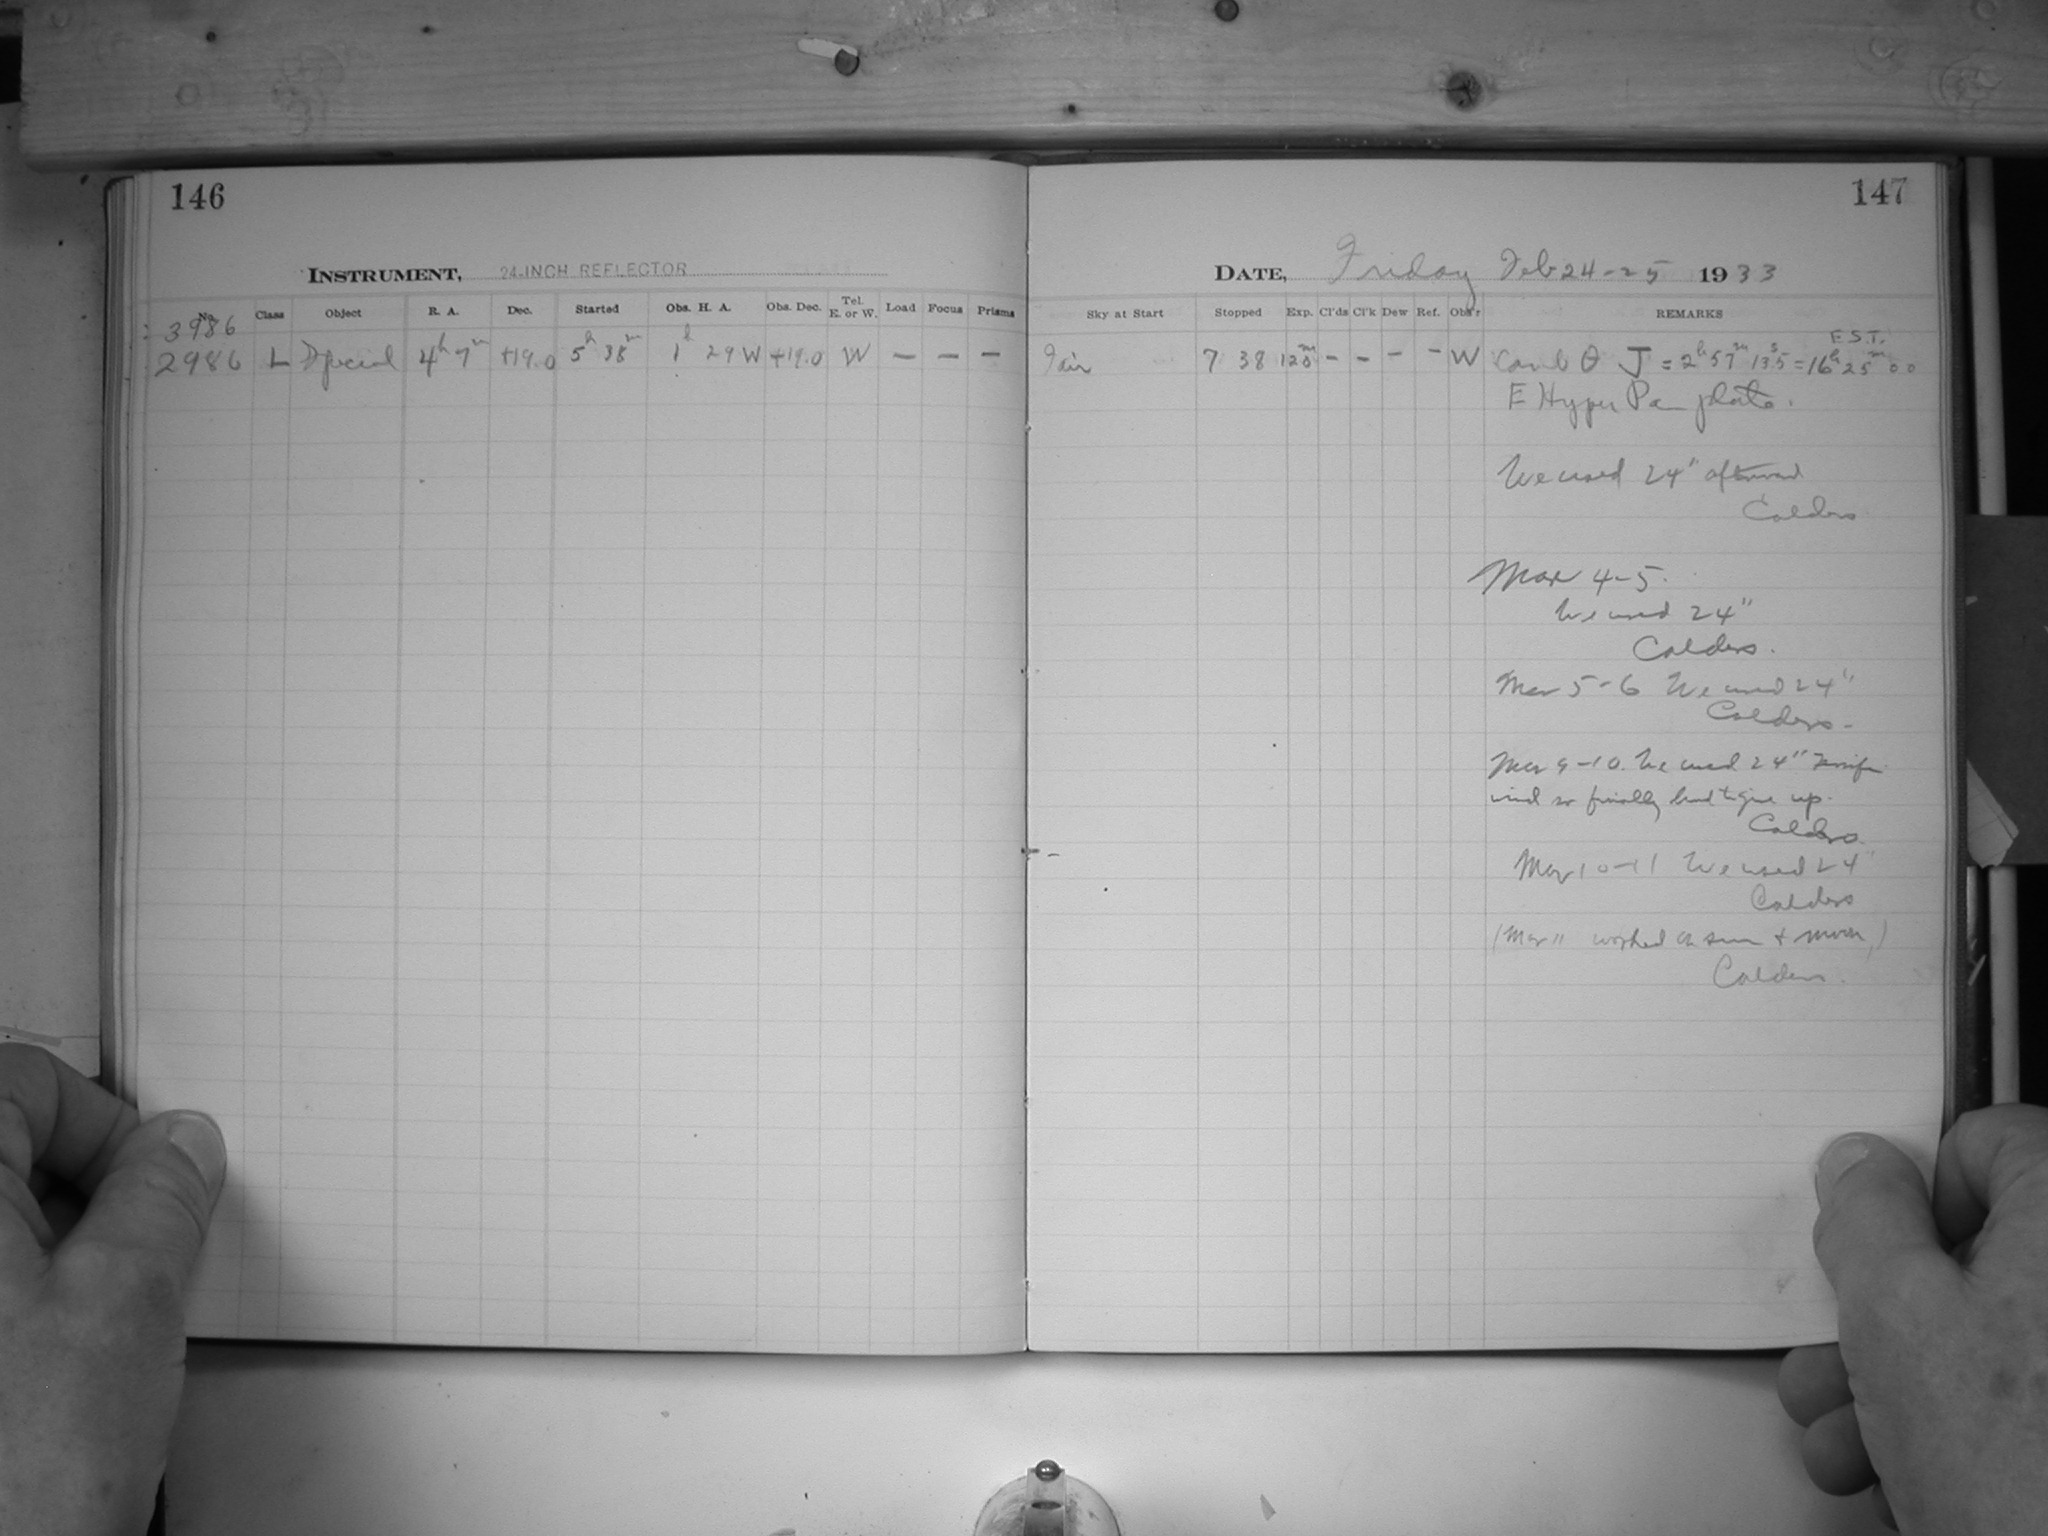 146
INSTRUMENT, 24-INCH REFLECTOR
No. Class Object R. A. Dec. Started Obs. H. A. Obs. Dec. Tel. E. or W. Load Focus Prisms
3986
2986 L Special 4h 7m +19.0 5h 38m 1h 29 W +19.0 W — — —
147
DATE, Friday Feb 24-25 1933
Sky at Start Stopped Exp. Cl'ds Cl'k Dew Ref. Obs'r REMARKS
E.S.T.
Fair 7 38 120m - - - - W θ J = 2h 57m 13s.5 = 16h 25m 00
E Hyper Pan plate.
We used 24" afterward
Calders
Mar 4-5.
We used 24"
Calders.
Mar 5-6 We used 24"
Calders.
Mar 9-10. We used 24" Terrific
wind so finally had to give up.
Calders
Mar 10-11 We used 24"
Calders
(Mar 11 worked on sun + moon.)
Calders.